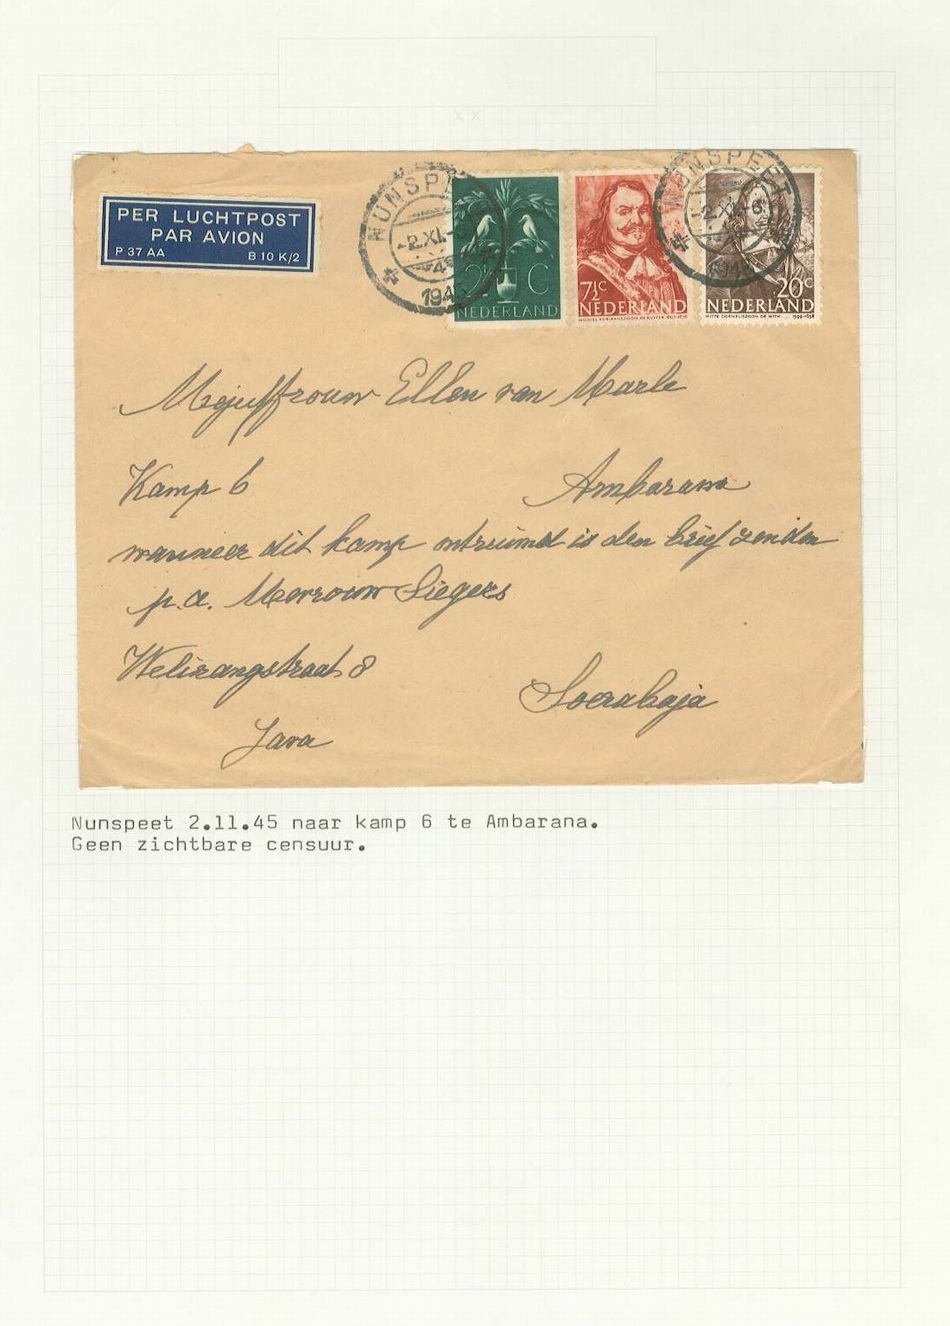 PER LUCHTPOST
PAR AVION
P 37 AA B 10 K/2
NUNSPEET
2.XI.
1945
NUNSPEET
2.XI.
1945
2½ C
NEDERLAND
7½ C
NEDERLAND
MICHIEL ADRIAANSZOON DE RUYTER 1607-1676
20 C
NEDERLAND
WITTE CORNELISZOON DE WITH 1599-1658
Mejuffrouw Ellen van Marle
Kamp 6 Ambarawa
wanneer dit kamp ontruimd is den brief zenden
p.a. Mevrouw Siegers
Welirangstraat 8
Soerabaja
Java
Nunspeet 2.11.45 naar kamp 6 te Ambarana.
Geen zichtbare censuur.